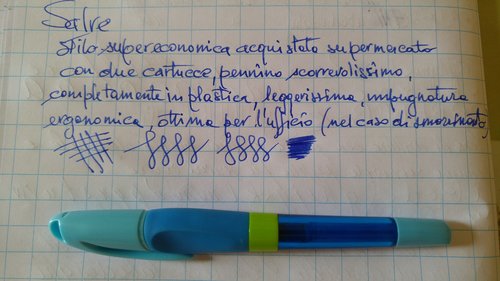 Salve
stilo supereconomica acquistata supermercato
con due cartucce, pennino scorrevolissimo,
completamente in plastica, leggerissima, impugnatura
ergonomica, ottima per l'ufficio (nel caso di smarrimento)